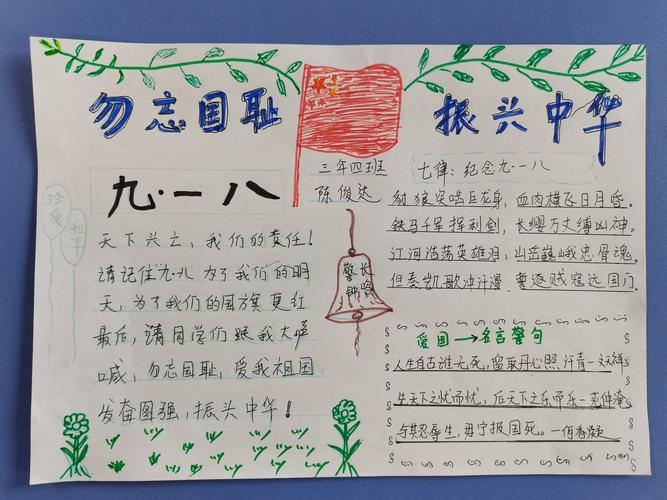 勿忘国耻
振兴中华
三年四班
陈俊达
九·一八
珍爱
和平
天下兴亡，我们的责任！
请记住九·八 为了我们的明
天，为了我们的国旗更红
最后，请同学们跟我大声
喊，勿忘国耻，爱我祖国
发奋图强，振兴中华！
警钟
长鸣
七律：纪念九·一八
豺狼突啮巨龙身，血肉横飞日月昏。
铁马千军挥利剑，长缨万丈缚凶神。
江河浩荡英雄泪，山岳巍峨忠骨魂。
但奏凯歌冲汗漫，誓逐贼寇远国门。
爱国→名言警句
人生自古谁无死，留取丹心照汗青－文天祥
先天下之忧而忧，后天下之乐而乐－范仲淹
与其忍辱生，毋宁报国死。－何香凝